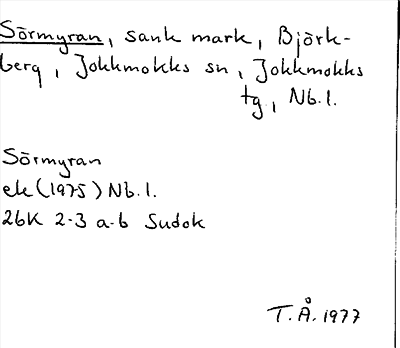 Sörmyran, sank mark, Björk-
berg, Jokkmokks sn, Jokkmokks
tg, Nb.l.
Sörmyran
ek (1975) Nb.l.
26K 2-3 a-b Sudok
T.Å. 1977